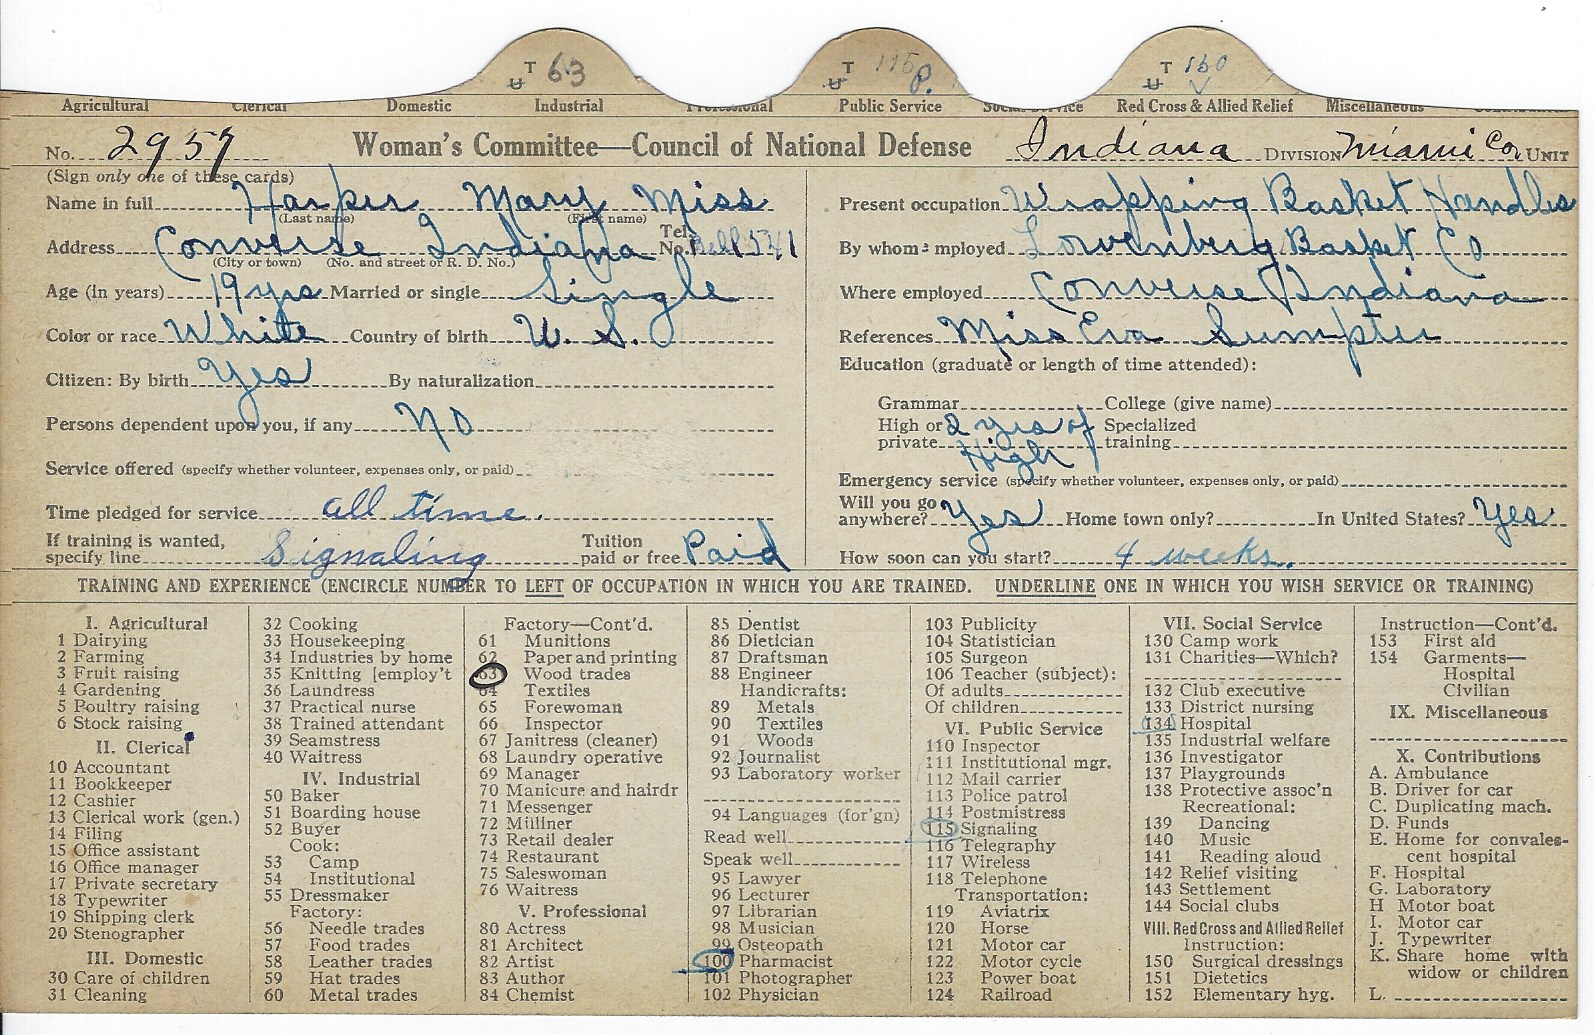 T 63 T 115 P. T 150
U U U
Agricultural Clerical Domestic Industrial Professional Public Service Social Service Red Cross & Allied Relief Miscellaneous
No. 2957 Woman's Committee—Council of National Defense Indiana DIVISION Miami Co. UNIT
(Sign only one of these cards)
Name in full Harper Mary Miss
(Last name) (First name)
Address Converse Indiana Tel. No. Bell 5341
(City or town) (No. and street or R. D. No.)
Age (in years) 19 yrs Married or single Single
Color or race White Country of birth U. S.
Citizen: By birth Yes By naturalization
Persons dependent upon you, if any No
Service offered (specify whether volunteer, expenses only, or paid)
Time pledged for service all time.
If training is wanted, specify line Signaling Tuition paid or free Paid
Present occupation Wrapping Basket Handles
By whom employed Basket Co
Where employed Converse Indiana
References Miss Eva Sumpter
Education (graduate or length of time attended):
Grammar College (give name)
High or private 2 yrs of High Specialized training
Emergency service (specify whether volunteer, expenses only, or paid)
Will you go anywhere? Yes Home town only? In United States? Yes
How soon can you start? 4 weeks.
TRAINING AND EXPERIENCE (ENCIRCLE NUMBER TO LEFT OF OCCUPATION IN WHICH YOU ARE TRAINED. UNDERLINE ONE IN WHICH YOU WISH SERVICE OR TRAINING)
I. Agricultural
1 Dairying
2 Farming
3 Fruit raising
4 Gardening
5 Poultry raising
6 Stock raising
II. Clerical
10 Accountant
11 Bookkeeper
12 Cashier
13 Clerical work (gen.)
14 Filing
15 Office assistant
16 Office manager
17 Private secretary
18 Typewriter
19 Shipping clerk
20 Stenographer
III. Domestic
30 Care of children
31 Cleaning
32 Cooking
33 Housekeeping
34 Industries by home
35 Knitting [employ't
36 Laundress
37 Practical nurse
38 Trained attendant
39 Seamstress
40 Waitress
IV. Industrial
50 Baker
51 Boarding house
52 Buyer
Cook:
53 Camp
54 Institutional
55 Dressmaker
Factory:
56 Needle trades
57 Food trades
58 Leather trades
59 Hat trades
60 Metal trades
Factory—Cont'd.
61 Munitions
62 Paper and printing
63 Wood trades
64 Textiles
65 Forewoman
66 Inspector
67 Janitress (cleaner)
68 Laundry operative
69 Manager
70 Manicure and hairdr
71 Messenger
72 Milliner
73 Retail dealer
74 Restaurant
75 Saleswoman
76 Waitress
V. Professional
80 Actress
81 Architect
82 Artist
83 Author
84 Chemist
85 Dentist
86 Dietician
87 Draftsman
88 Engineer
Handicrafts:
89 Metals
90 Textiles
91 Woods
92 Journalist
93 Laboratory worker
94 Languages (for'gn)
Read well
Speak well
95 Lawyer
96 Lecturer
97 Librarian
98 Musician
99 Osteopath
100 Pharmacist
101 Photographer
102 Physician
103 Publicity
104 Statistician
105 Surgeon
106 Teacher (subject):
Of adults
Of children
VI. Public Service
110 Inspector
111 Institutional mgr.
112 Mail carrier
113 Police patrol
114 Postmistress
115 Signaling
116 Telegraphy
117 Wireless
118 Telephone
Transportation:
119 Aviatrix
120 Horse
121 Motor car
122 Motor cycle
123 Power boat
124 Railroad
VII. Social Service
130 Camp work
131 Charities—Which?
132 Club executive
133 District nursing
134 Hospital
135 Industrial welfare
136 Investigator
137 Playgrounds
138 Protective assoc'n
Recreational:
139 Dancing
140 Music
141 Reading aloud
142 Relief visiting
143 Settlement
144 Social clubs
VIII. Red Cross and Allied Relief
Instruction:
150 Surgical dressings
151 Dietetics
152 Elementary hyg.
Instruction—Cont'd.
153 First aid
154 Garments—
Hospital
Civilian
IX. Miscellaneous
X. Contributions
A. Ambulance
B. Driver for car
C. Duplicating mach.
D. Funds
E. Home for convales-
cent hospital
F. Hospital
G. Laboratory
H Motor boat
I. Motor car
J. Typewriter
K. Share home with
widow or children
L.